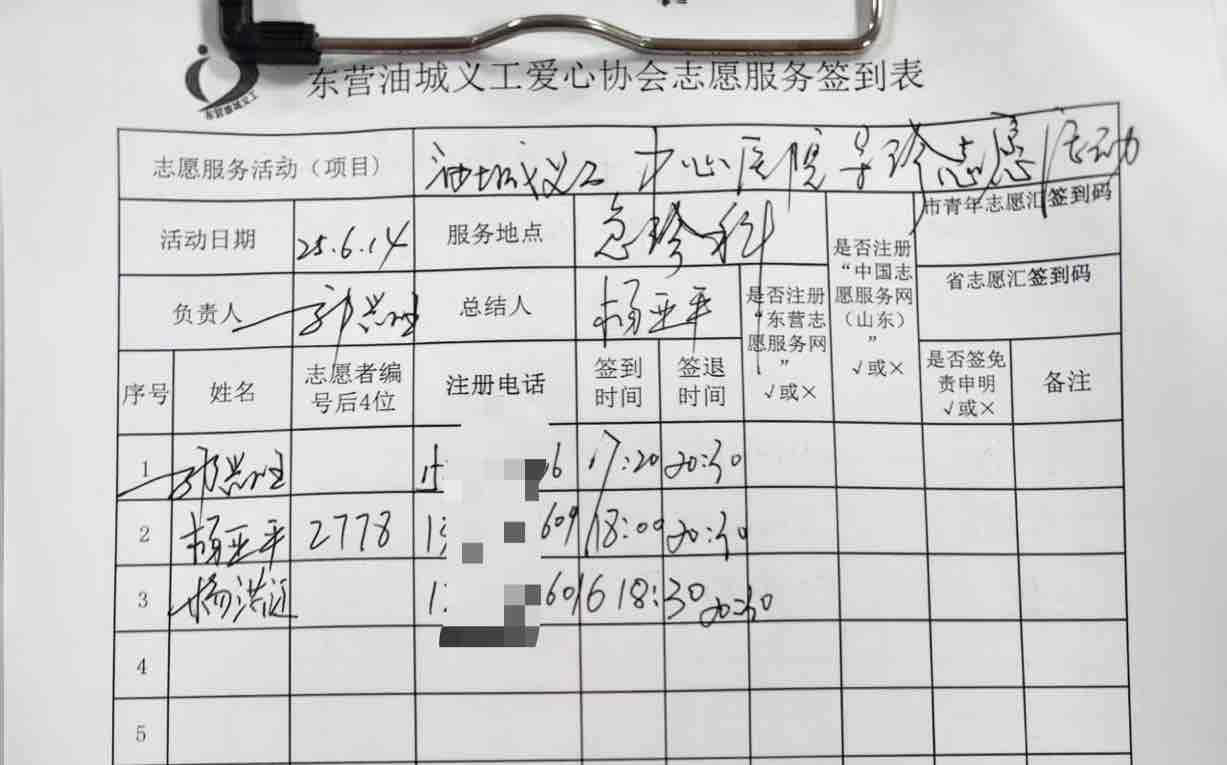 东营油城义工
东营油城义工爱心协会志愿服务签到表
志愿服务活动（项目） 油城义工 中心医院导诊志愿活动
活动日期 25.6.14 服务地点 急诊科 是否注册“中国志愿服务网（山东）”√或× 市青年志愿汇签到码
负责人 总结人 杨亚平 是否注册“东营志愿服务网”√或× 省志愿汇签到码
序号 姓名 志愿者编号后4位 注册电话 签到时间 签退时间 是否签免责申明√或× 备注
1 17:20 20:30
2 杨亚平 2778 609 18:00 20:30
3 6016 18:30 20:30
4
5